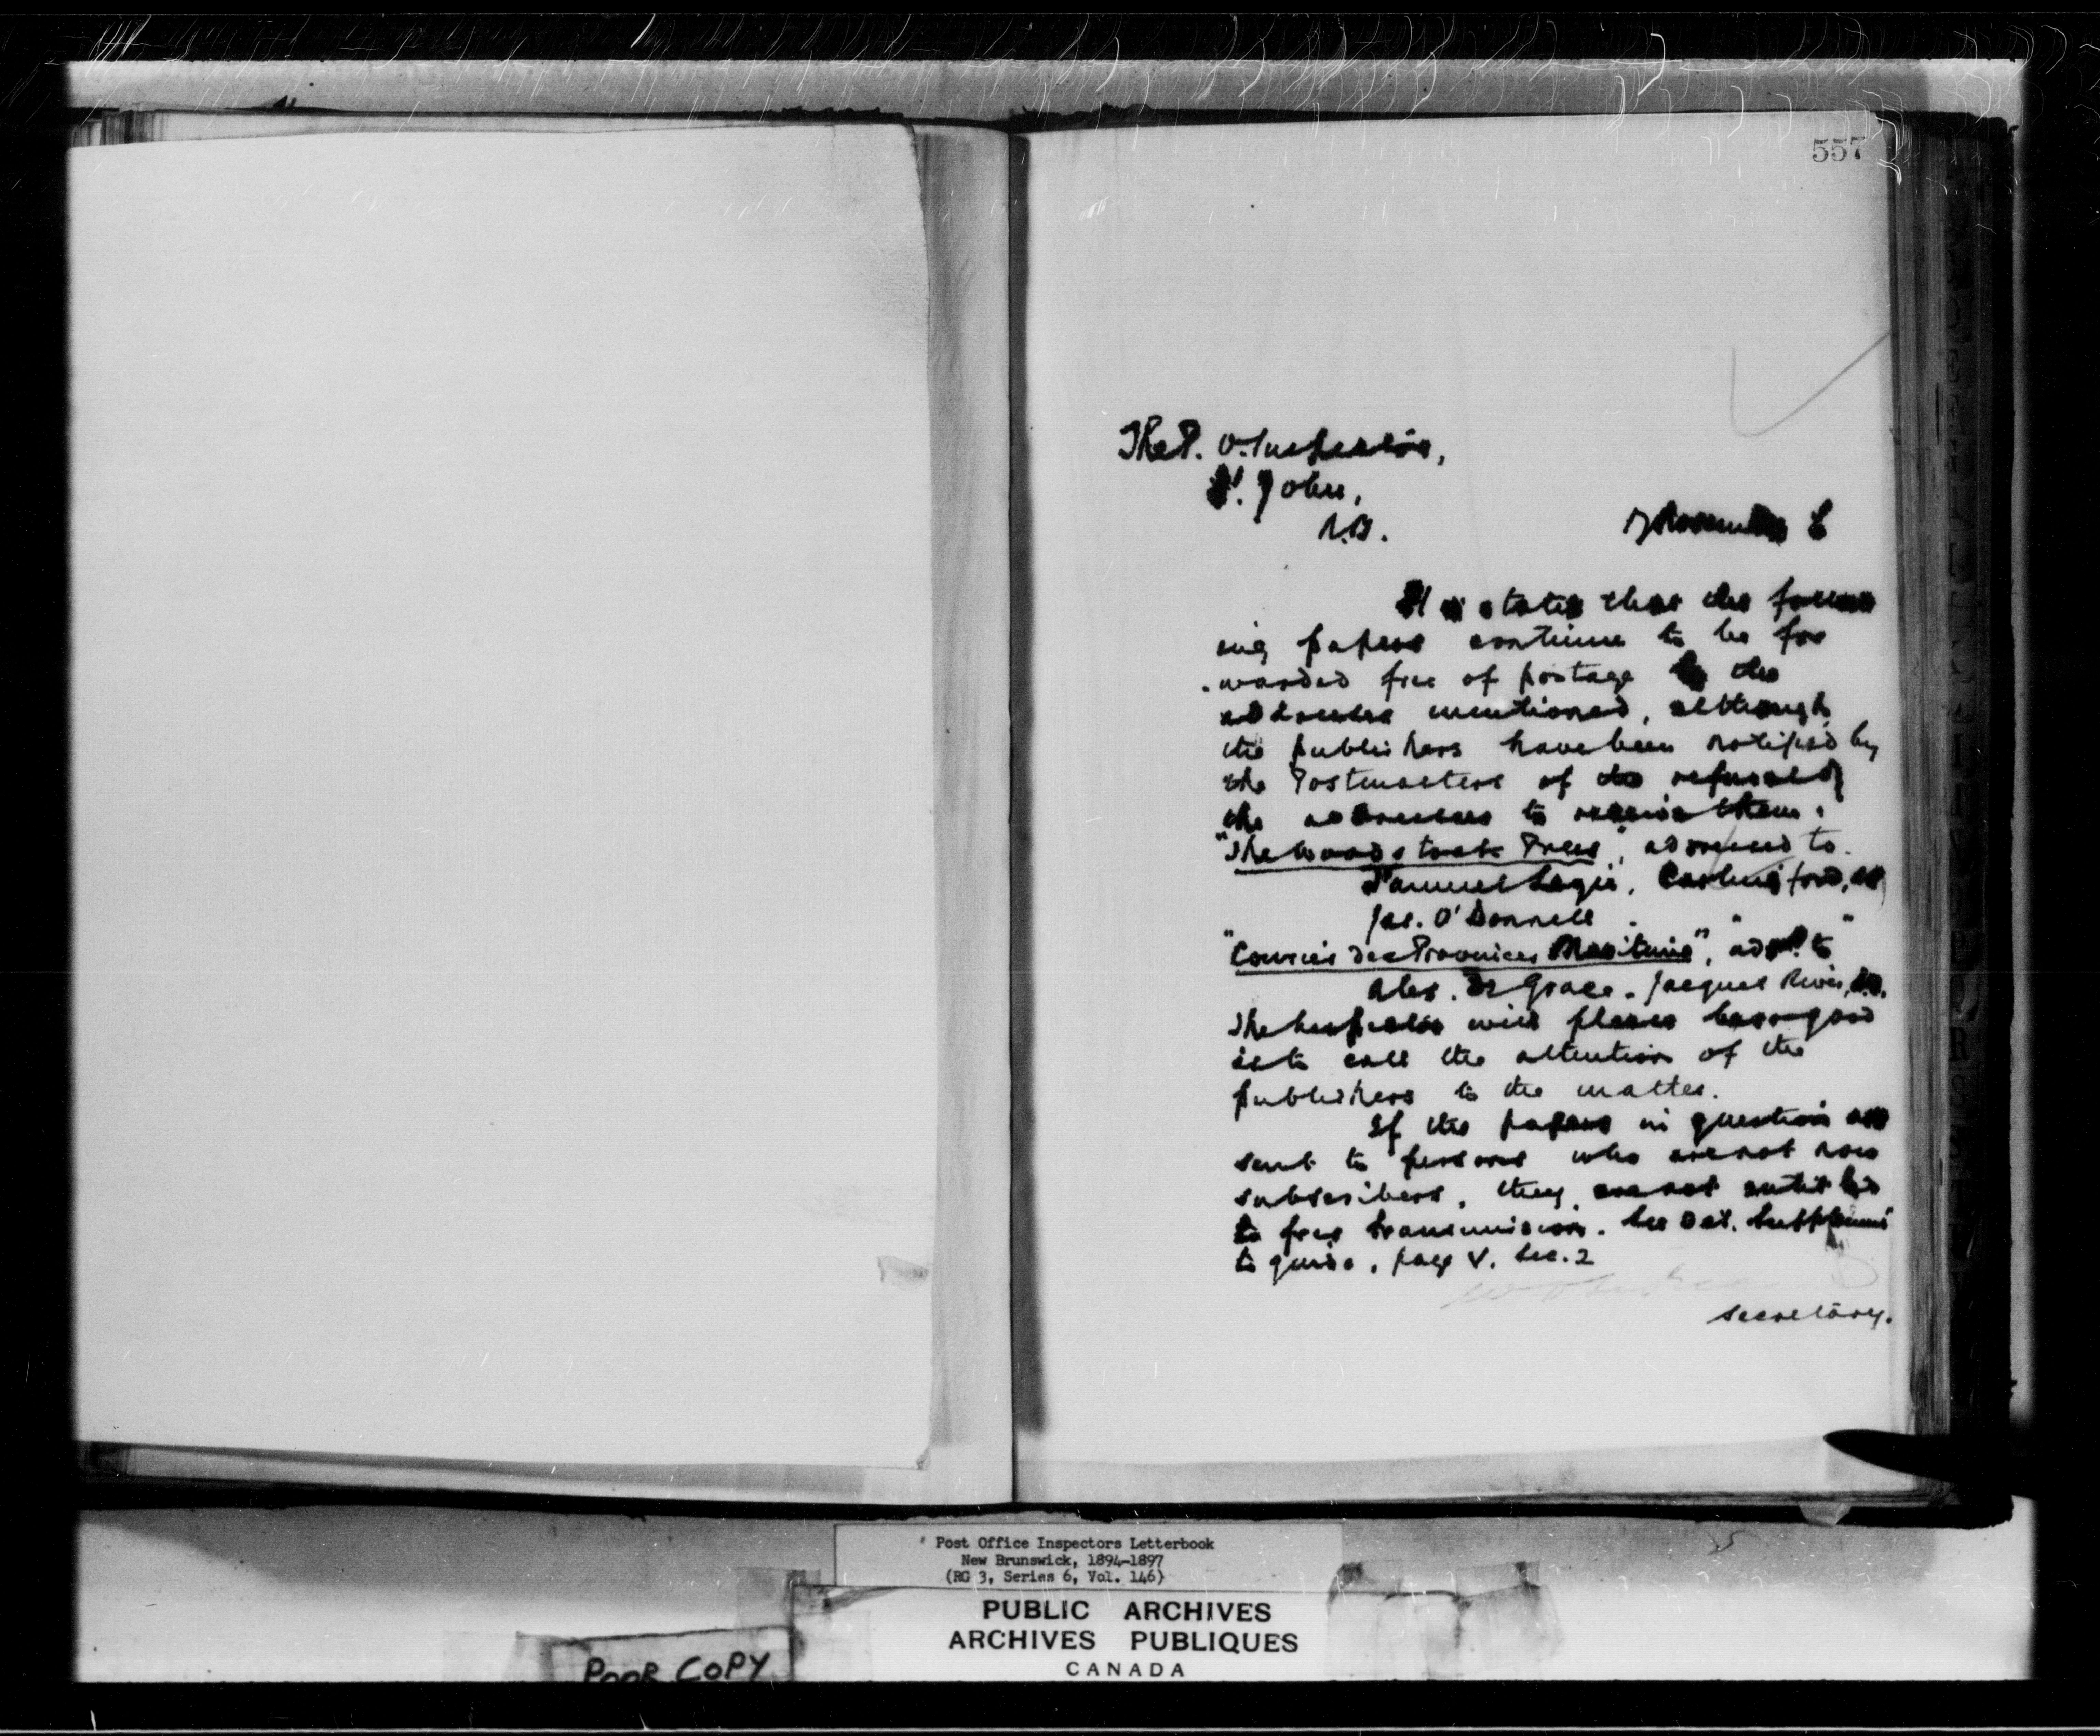 557
The P. O. Inspector,
St. John,
N.B.
It is stated that the follow
ing papers continue to be for
warded free of postage to the
addresses mentioned, although
the publishers have been notified by
the Postmasters of the refusal of
the addressees to receive them:
"The Woodstock Press", addressed to
Samuel Logie, Carlingford, NB
Jas. O'Donnell " "
"Courrier des Provinces Maritime", add. to
Alex. De Grace. Jacquet River, N.B.
The Inspector will please be so good
as to call the attention of the
publishers to the matter.
If the papers in question are
sent to persons who are not now
subscribers, they are not entitled
to free transmission. See Oct. Supplement
to guide, page V. Sec. 2
Secretary.
Post Office Inspectors Letterbook
New Brunswick, 1894-1897
(RG 3, Series 6, Vol. 146)
PUBLIC ARCHIVES
ARCHIVES PUBLIQUES
CANADA
POOR COPY